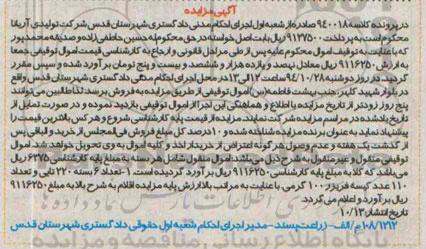 آگهی مزایده
در پرونده کلاسه ۹۴۰۰۱۸ صادره از شعبه اول اجرای احکام مدنی دادگستری شهرستان قدس شرکت تولیدی آریانا
محکوم است به پرداخت ۹۱۲۷۵۰۰ ریال بابت اصل خواسته در حق محکوم له حسین حاطفی زاده و صدیقه محمدپور
که با عنایت به توقیف اموال محکوم علیه پس از طی مراحل قانونی و ارجاع به کارشناسی قیمت اموال توقیفی جمعا
به ارزش ۹۱۱۶۲۵۰ ریال معادل نهصد و یازده هزار و ششصد و بیست و پنج تومان برآورد شده و سپس مقرر
گردید در روز دوشنبه ۹۴/۱۰/۲۸ ساعت ۱۲ الی ۱۳ در محل اجرای احکام مدنی دادگستری شهرستان قدس واقع
در بلوار شهید کلهر، جنب بهشت فاطمه(س) اموال توقیفی از طریق مزایده به فروش برسد لذا طالبین می توانند
پنج روز زودتر از تاریخ مزایده با اطلاع و هماهنگی این اجرا از اموال توقیفی بازدید نموده و در صورت تمایل از تاریخ
یادشده در مراسم مزایده شرکت نمایند. مزایده از قیمت پایه کارشناسی شروع و هر کس بالاترین قیمت را
پیشنهاد نماید به عنوان برنده مزایده شناخته شده و ۱۰ درصد کل مبلغ فروش فی المجلس از خرید و الباقی پس
از گذشت یک هفته و عدم وصول هر گونه اعتراض از خریدار اخذ و کلیه اموال به وی تحویل خواهد شد. اموال
توقیفی منقول و غیر منقول به شرح ذیل می باشد: اموال منقول شامل هر بسته به مبلغ پایه کارشناسی ۶۳۷۵ ریال
می باشد که کلا به مبلغ پایه کارشناسی ۹۱۱۶۲۵۰ ریال برآورد گردیده است. ۱- تعداد ۶ بسته ۲۲۰ تایی و تعداد
۱۱۰ عدد کیسه فریزر ۱۰۰ گرمی با عنایت به مراتب بالا ارزش پایه مزایده اقلام به شرح بالا به مبلغ ۹۱۱۶۲۵۰
ریال برآورد و اعلام می گردد.
تاریخ انتشار: ۱۰/۱۳
۱۰۸/۱۲۱۲/الف - زراعت پسند - مدیر اجرای احکام شعبه اول حقوقی دادگستری شهرستان قدس